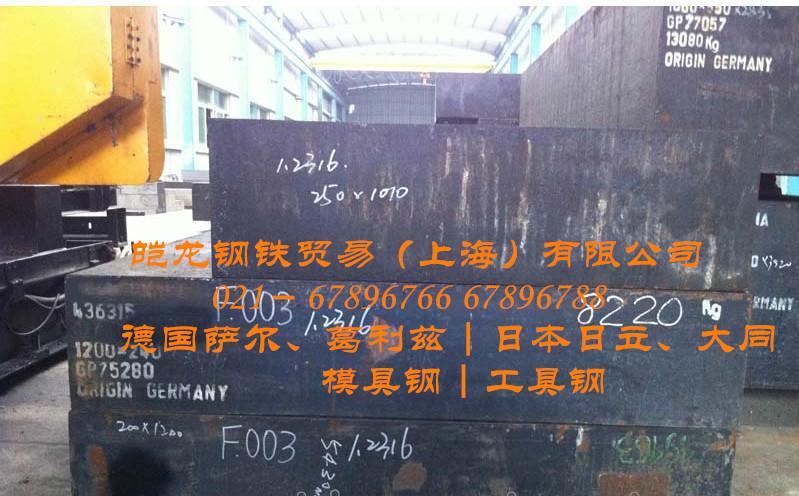 GP77057
13080Kg
ORIGIN GERMANY
1.2316.
250×1010
皑龙钢铁贸易（上海）有限公司
021－67896766 67896788
德国萨尔、葛利兹｜日本日立、大同
模具钢｜工具钢
436315
F.003
1.2316
8220 Kg
GP75280
ORIGIN GERMANY
200×1300
F.003
1.2316